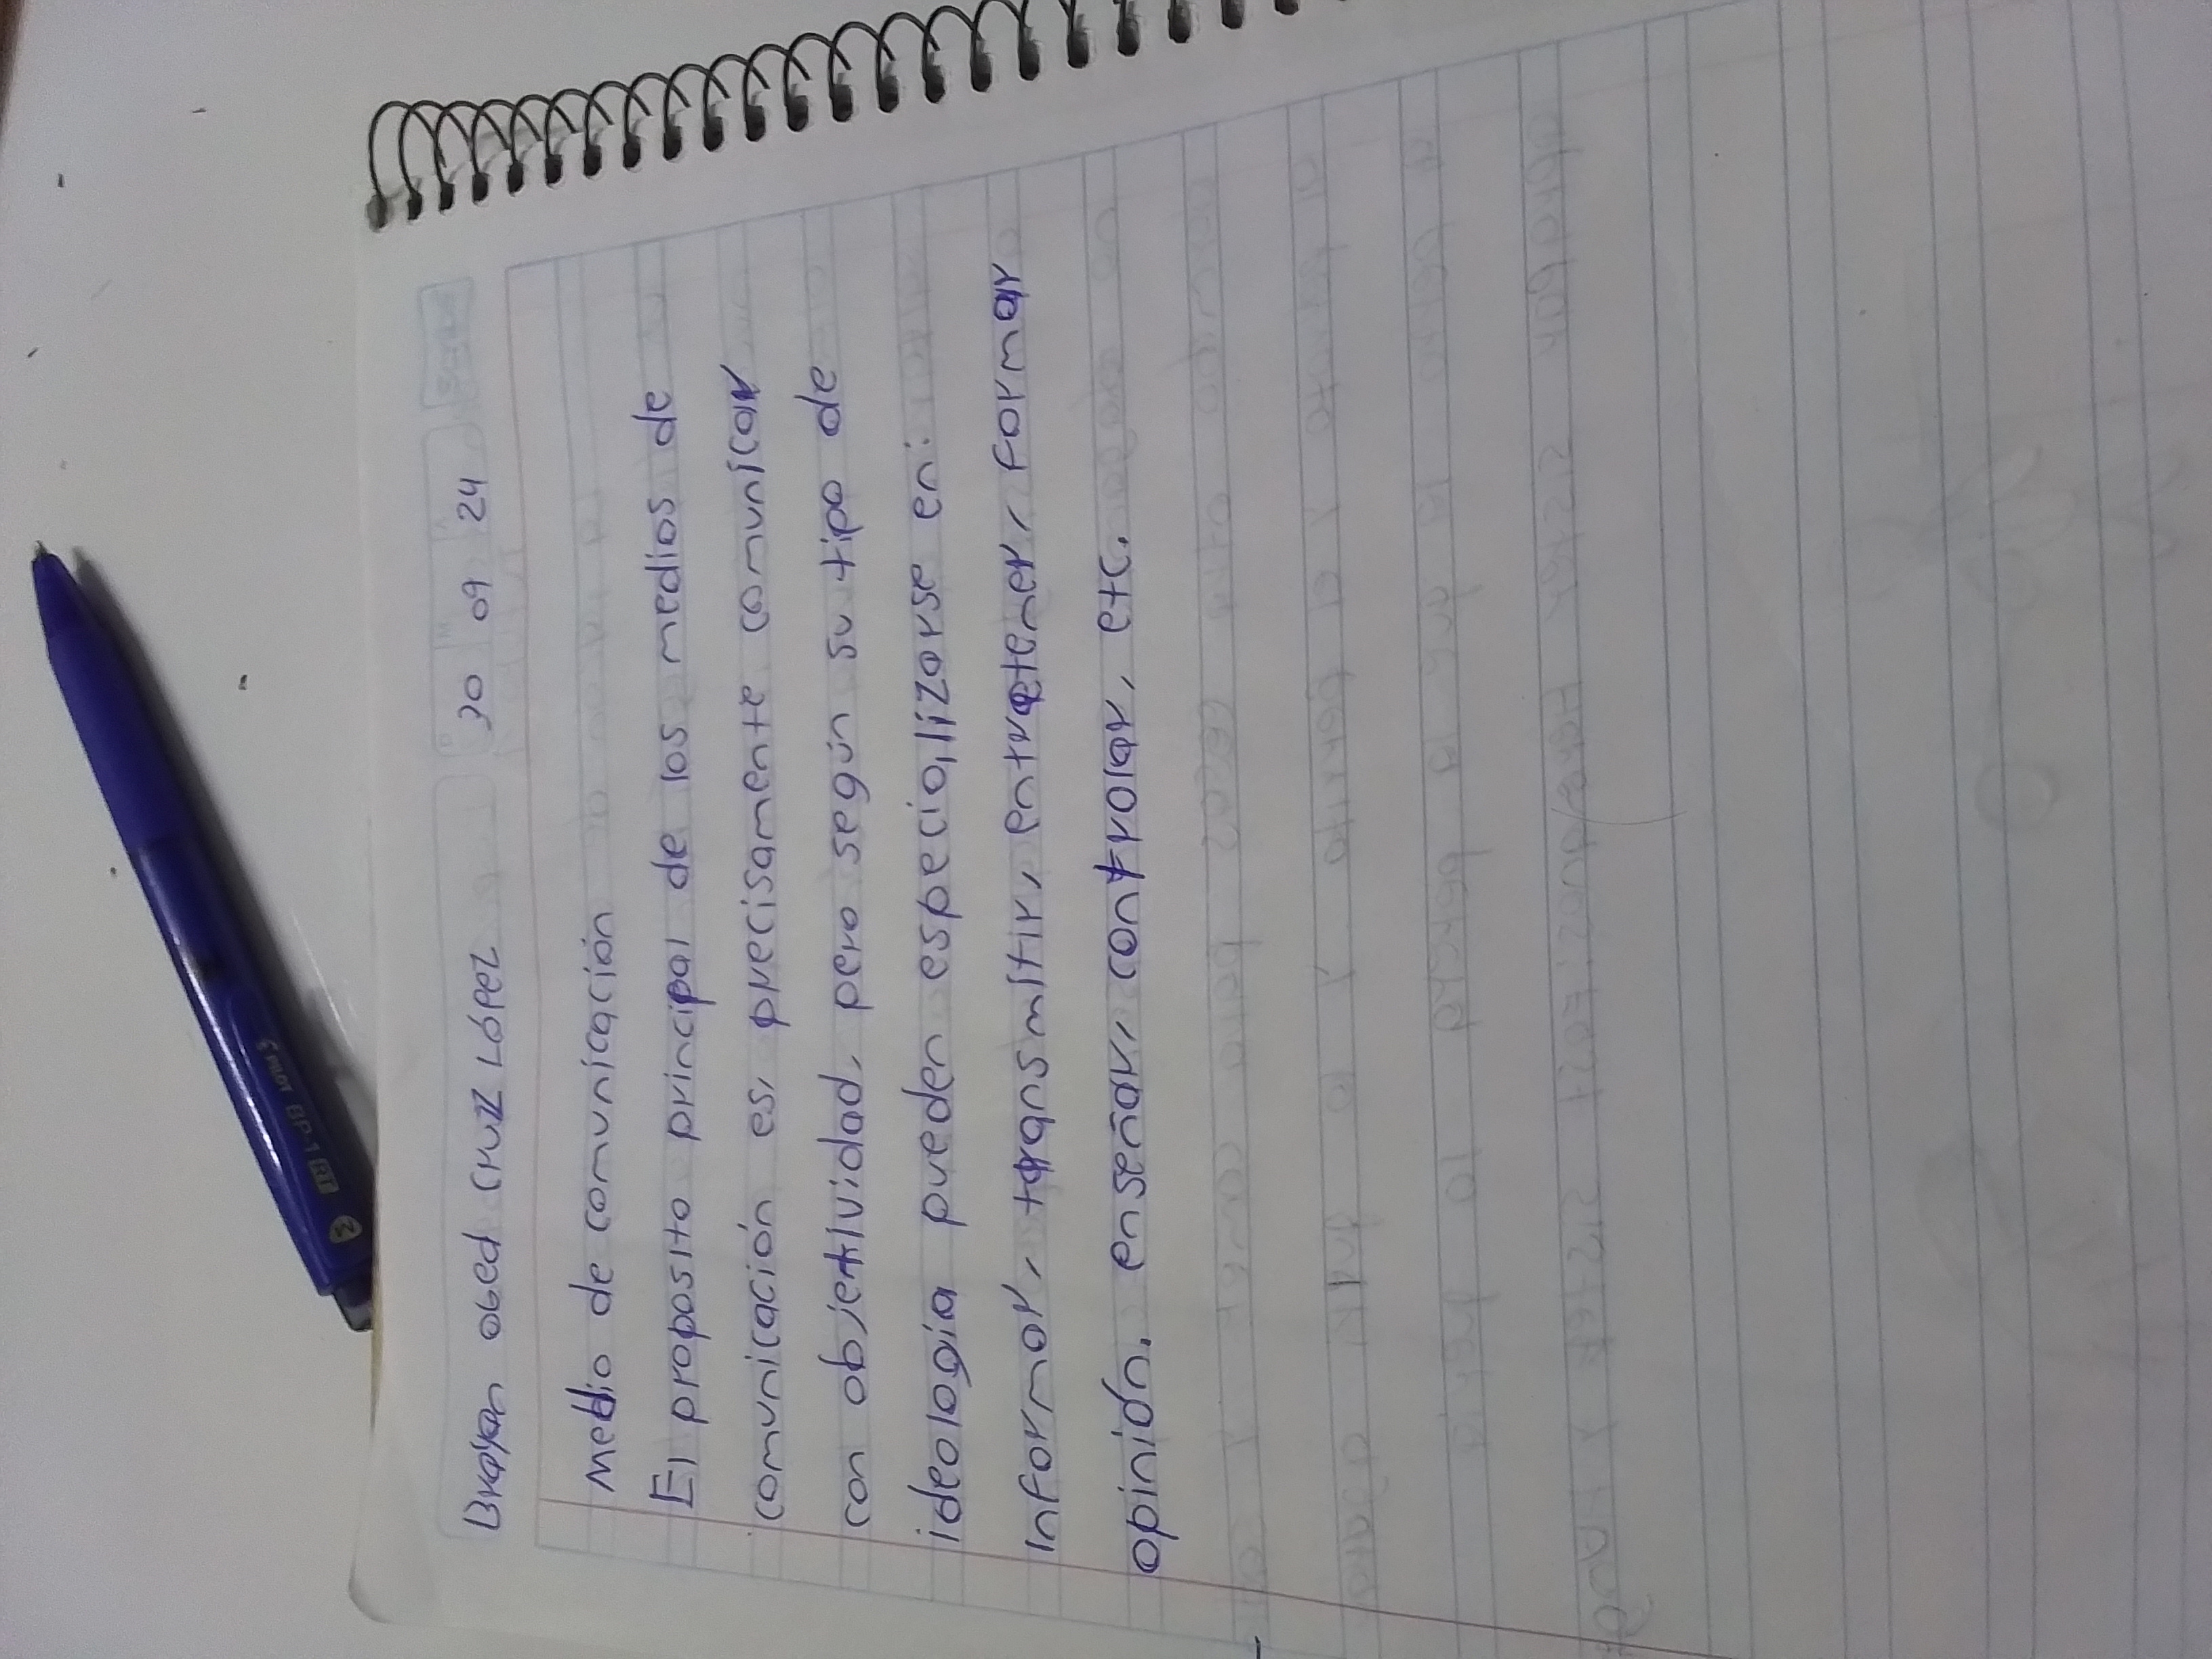 Brayan obed cruz López 30 09 24
Medio de comunicación
El proposito principal de los medios de
comunicación es, precisamente comunicar
con objetividad, pero según su tipo de
ideología pueden especializarse en:
Informar, transmitir, entretener, formar
opinión, enseñar, controlar, etc.
PILOT BP-1 RT